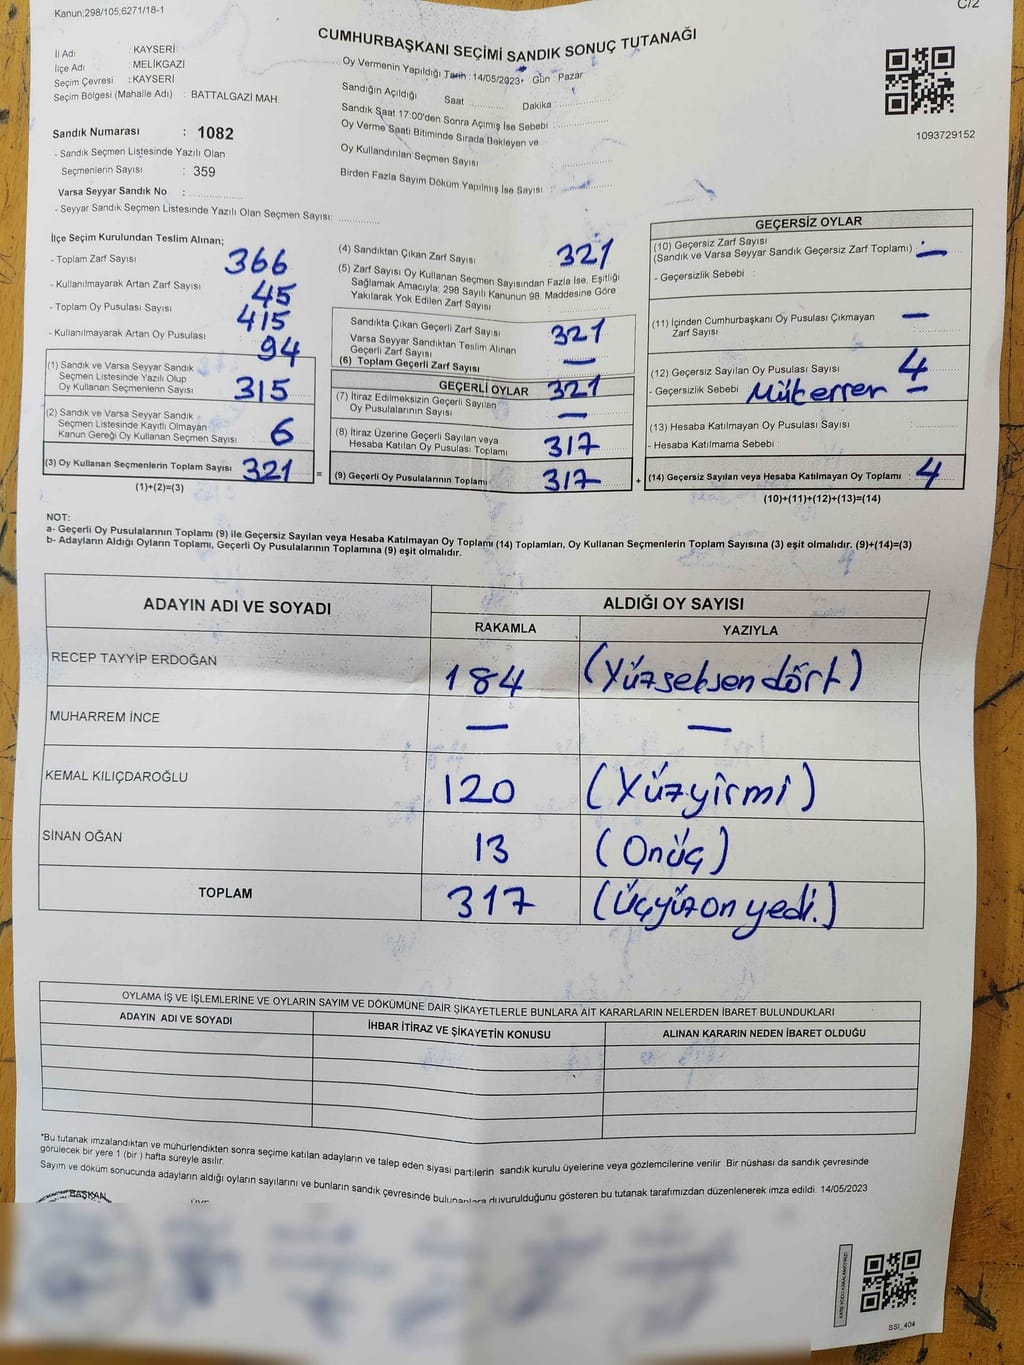 Kanun;298/105,6271/18-1
C/2
CUMHURBAŞKANI SEÇİMİ SANDIK SONUÇ TUTANAĞI
İl Adı : KAYSERİ
İlçe Adı : MELİKGAZİ
Seçim Çevresi : KAYSERİ
Seçim Bölgesi (Mahalle Adı) : BATTALGAZİ MAH.
Sandık Numarası : 1082
- Sandık Seçmen Listesinde Yazılı Olan
Seçmenlerin Sayısı : 359
Varsa Seyyar Sandık No : ..............
- Seyyar Sandık Seçmen Listesinde Yazılı Olan Seçmen Sayısı: ............
Oy Vermenin Yapıldığı Tarih : 14/05/2023 Gün : Pazar
Sandığın Açıldığı Saat .......... Dakika : ..............
Sandık Saat 17.00'den Sonra Açımış İse Sebebi : ..............
Oy Verme Saati Bitiminde Sırada Bekleyen ve
Oy Kullandırılan Seçmen Sayısı : ..............
Birden Fazla Sayım Döküm Yapılmış İse Sayısı : ..............
1093729152
İlçe Seçim Kurulundan Teslim Alınan;
- Toplam Zarf Sayısı 366
- Kullanılmayarak Artan Zarf Sayısı 45
- Toplam Oy Pusulası Sayısı 415
- Kullanılmayarak Artan Oy Pusulası 94
(1) Sandık ve Varsa Seyyar Sandık
Seçmen Listesinde Yazılı Olup
Oy Kullanan Seçmenlerin Sayısı 315
(2) Sandık ve Varsa Seyyar Sandık
Seçmen Listesinde Kayıtlı Olmayan
Kanun Gereği Oy Kullanan Seçmen Sayısı 6
(3) Oy Kullanan Seçmenlerin Toplam Sayısı 321 =
(1)+(2)=(3)
(4) Sandıktan Çıkan Zarf Sayısı 321
(5) Zarf Sayısı Oy Kullanan Seçmen Sayısından Fazla İse, Eşitliği
Sağlamak Amacıyla; 298 Sayılı Kanunun 98. Maddesine Göre
Yakılarak Yok Edilen Zarf Sayısı
Sandıkta Çıkan Geçerli Zarf Sayısı 321
Varsa Seyyar Sandıktan Teslim Alınan
Geçerli Zarf Sayısı —
(6) Toplam Geçerli Zarf Sayısı
GEÇERLİ OYLAR 321
(7) İtiraz Edilmeksizin Geçerli Sayılan
Oy Pusulalarının Sayısı —
(8) İtiraz Üzerine Geçerli Sayılan veya
Hesaba Katılan Oy Pusulası Toplamı 317
(9) Geçerli Oy Pusulalarının Toplamı 317 +
GEÇERSİZ OYLAR
(10) Geçersiz Zarf Sayısı
(Sandık ve Varsa Seyyar Sandık Geçersiz Zarf Toplamı) : —
- Geçersizlik Sebebi :
(11) İçinden Cumhurbaşkanı Oy Pusulası Çıkmayan —
Zarf Sayısı
(12) Geçersiz Sayılan Oy Pusulası Sayısı 4
- Geçersizlik Sebebi Mükerrer —
(13) Hesaba Katılmayan Oy Pusulası Sayısı : ............
- Hesaba Katılmama Sebebi :
(14) Geçersiz Sayılan veya Hesaba Katılmayan Oy Toplamı 4
(10)+(11)+(12)+(13)=(14)
NOT:
a- Geçerli Oy Pusulalarının Toplamı (9) ile Geçersiz Sayılan veya Hesaba Katılmayan Oy Toplamı (14) Toplamları, Oy Kullanan Seçmenlerin Toplam Sayısına (3) eşit olmalıdır. (9)+(14)=(3)
b- Adayların Aldığı Oyların Toplamı, Geçerli Oy Pusulalarının Toplamına (9) eşit olmalıdır.
ADAYIN ADI VE SOYADI ALDIĞI OY SAYISI
RAKAMLA YAZIYLA
RECEP TAYYİP ERDOĞAN 184 (Yüzseksen dört)
MUHARREM İNCE — —
KEMAL KILIÇDAROĞLU 120 (Yüzyirmi)
SİNAN OĞAN 13 (Onüç)
TOPLAM 317 (Üçyüz on yedi.)
OYLAMA İŞ VE İŞLEMLERİNE VE OYLARIN SAYIM VE DÖKÜMÜNE DAİR ŞİKAYETLERLE BUNLARA AİT KARARLARIN NELERDEN İBARET BULUNDUKLARI
ADAYIN ADI VE SOYADI İHBAR İTİRAZ VE ŞİKAYETİN KONUSU ALINAN KARARIN NEDEN İBARET OLDUĞU
*Bu tutanak imzalandıktan ve mühürlendikten sonra seçime katılan adayların ve talep eden siyasi partilerin sandık kurulu üyelerine veya gözlemcilerine verilir. Bir nüshası da sandık çevresinde
görülecek bir yere 1 (bir ) hafta süreyle asılır.
Sayım ve döküm sonucunda adayların aldığı oyların sayılarını ve bunların sandık çevresinde bulunanlara duyurulduğunu gösteren bu tutanak tarafımızdan düzenlenerek imza edildi. 14/05/2023
BAŞKAN
SSİ_404